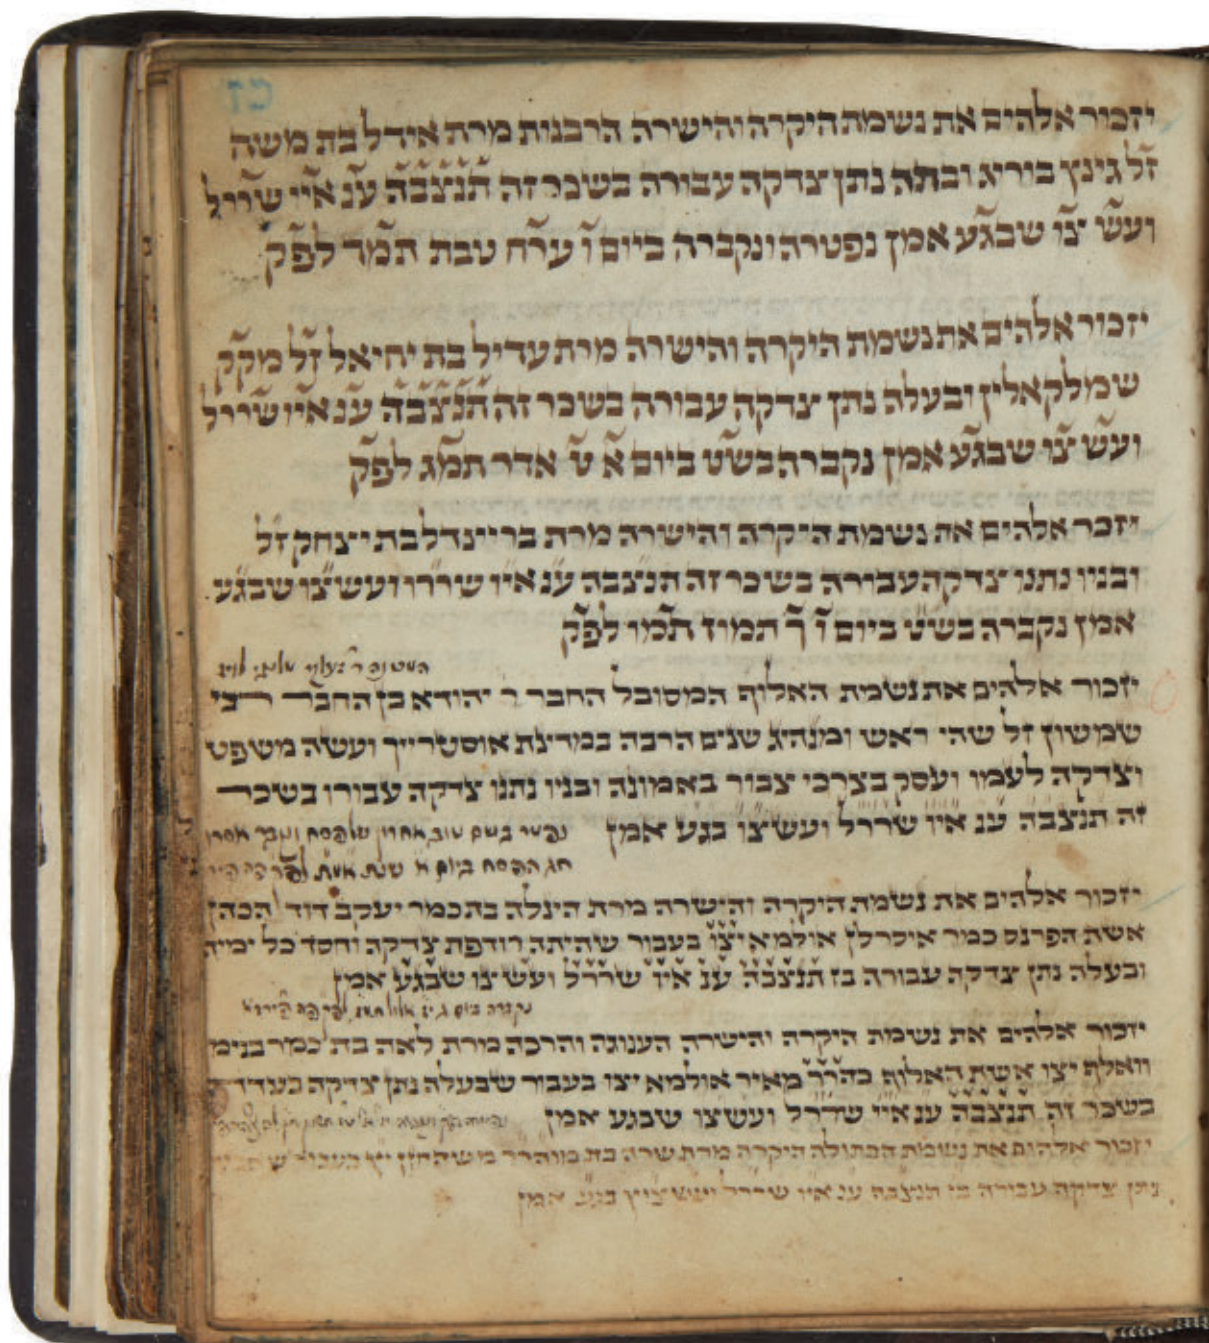 כז
יזכור אלהים את נשמת היקרה והישרה הרבנות מרת אידל בת משה
ז̃ל גינץ בוריג ובתה נתן צדקה עבורה בשכר זה ת̃נ̃צ̃ב̃ה̃ ענ̃ איי̃ שרי̃ל
ועש̃ צו̃ שבג̃ע אמן נפטרה ונקברה ביום ו̃ ער̃ח טבת תמ̃ד לפ̃ק
יזכור אלהים את נשמת היקרה והישרה מרת עדיל בת יחיאל ז̃ל מק̃ק
שמלקאלין ובעלה נתן צדקה עבורה בשכר זה ת̃נ̃צ̃ב̃ה̃ ענ̃ אי̃ו שר̃ר̃ל
ועש̃ צו̃ שבג̃ע אמן נקברה בש̃ט ביום א̃ ט̃ אדר תמ̃ג לפ̃ק
יזכר אלהים את נשמת היקרה והישרה מרת בריינדל בת יצחק ז̃ל
ובניו נתנו צדקה עבורה בשכר זה תנצבה ענ איו שררו ועש צו שבגע
אמן נקברה בש̃ט ביום ו̃ ך̃ תמוז תמ̃ו לפ̃ק
יזכור אלהים את נשמת האלוף המסובל החבר ר יהודא בן החבר רבי
שמשון זל שהי ראש ומנהיג שנים הרבה במדינת אוסטרייך ועשה משפט
וצדקה לעמו ועסק בצרכי צבור באמונה ובניו נתנו צדקה עבורו בשכר
זה תנצבה ענ איו שררל ועש צו בגע אמן נפטר בשם טוב אחרון של פסח ונקבר אסרו
חג הפסח ביום א שנת
יזכור אלהים את נשמת היקרה והישרה מרת הינלה בת כמר יעקב דוד הכהן
אשת הפרנס כמר איסרלן אולמא יצו בעבור שהיתה רודפת צדקה וחסד כל ימיה
ובעלה נתן צדקה עבורה בז תנצבה ענ איו שררל ועש צו שבגע אמן
נקברה ביום
יזכור אלהים את נשמת היקרה והישרה הענוגה והרכה מרת לאה בת כמר בנימ
וואלף יצו אשת האלוף כהרר מאיר אולמא יצו בעבור שבעלה נתן צדקה בעדה
בשכר זה תנצבה ענ איי שררל ועש צו שבגע אמן
יזכור אלהים את נשמת הבתולה היקרה מרת שרה בת מוהרר משה חזן יצ בעבור
נתן צדקה עבורה בז תנצבה ענ איו שררל ועש צויץ בגע אמן